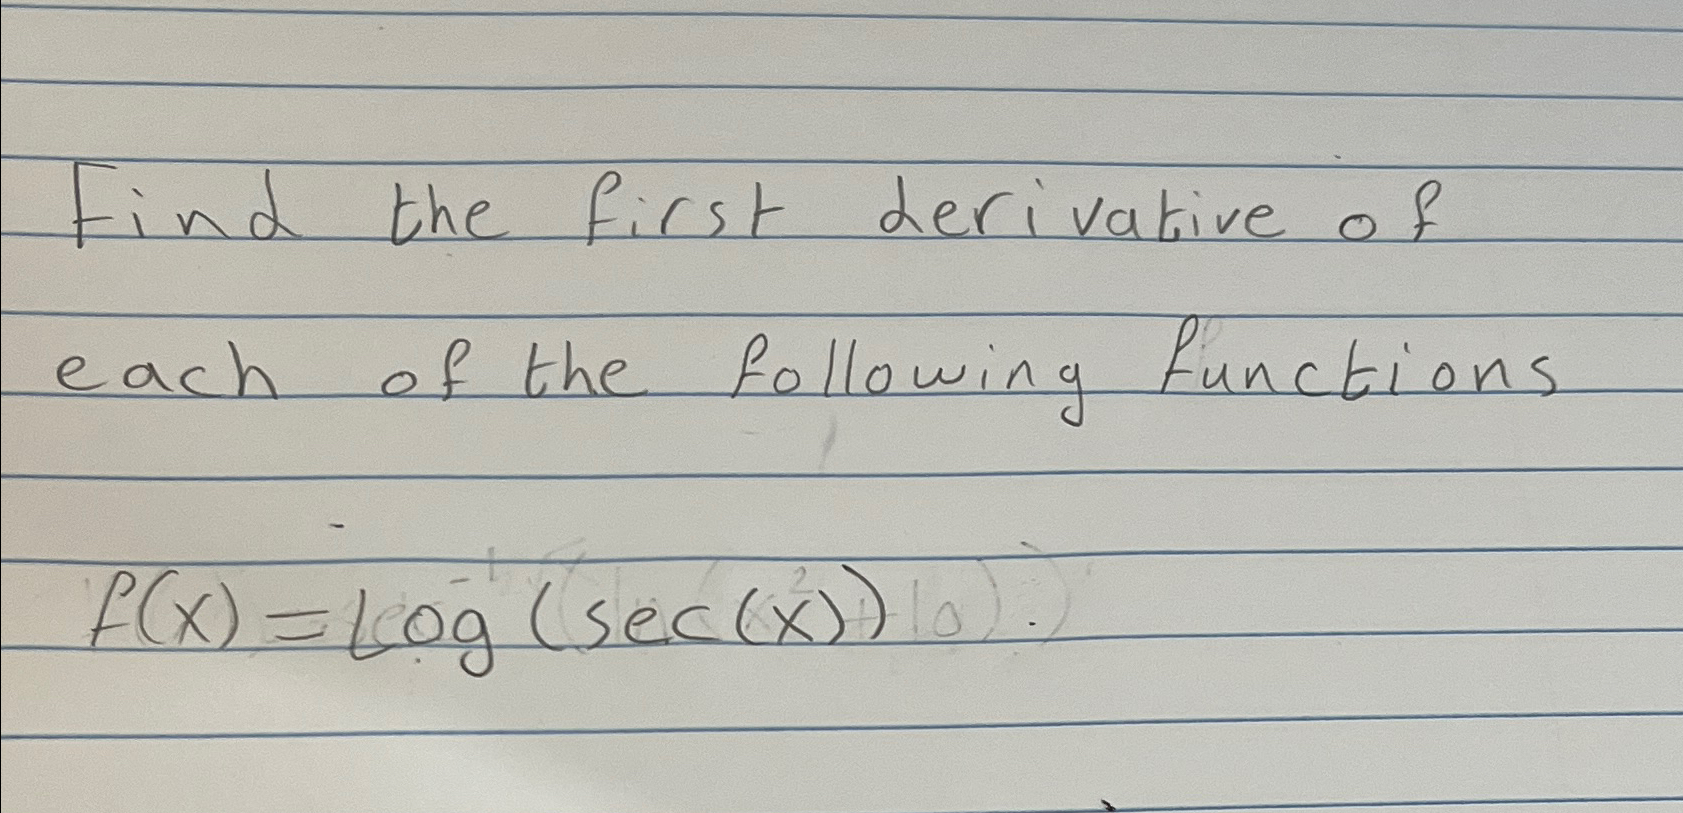 Find the first derivative of
each of the following functions
f(x) = Log (sec(x))